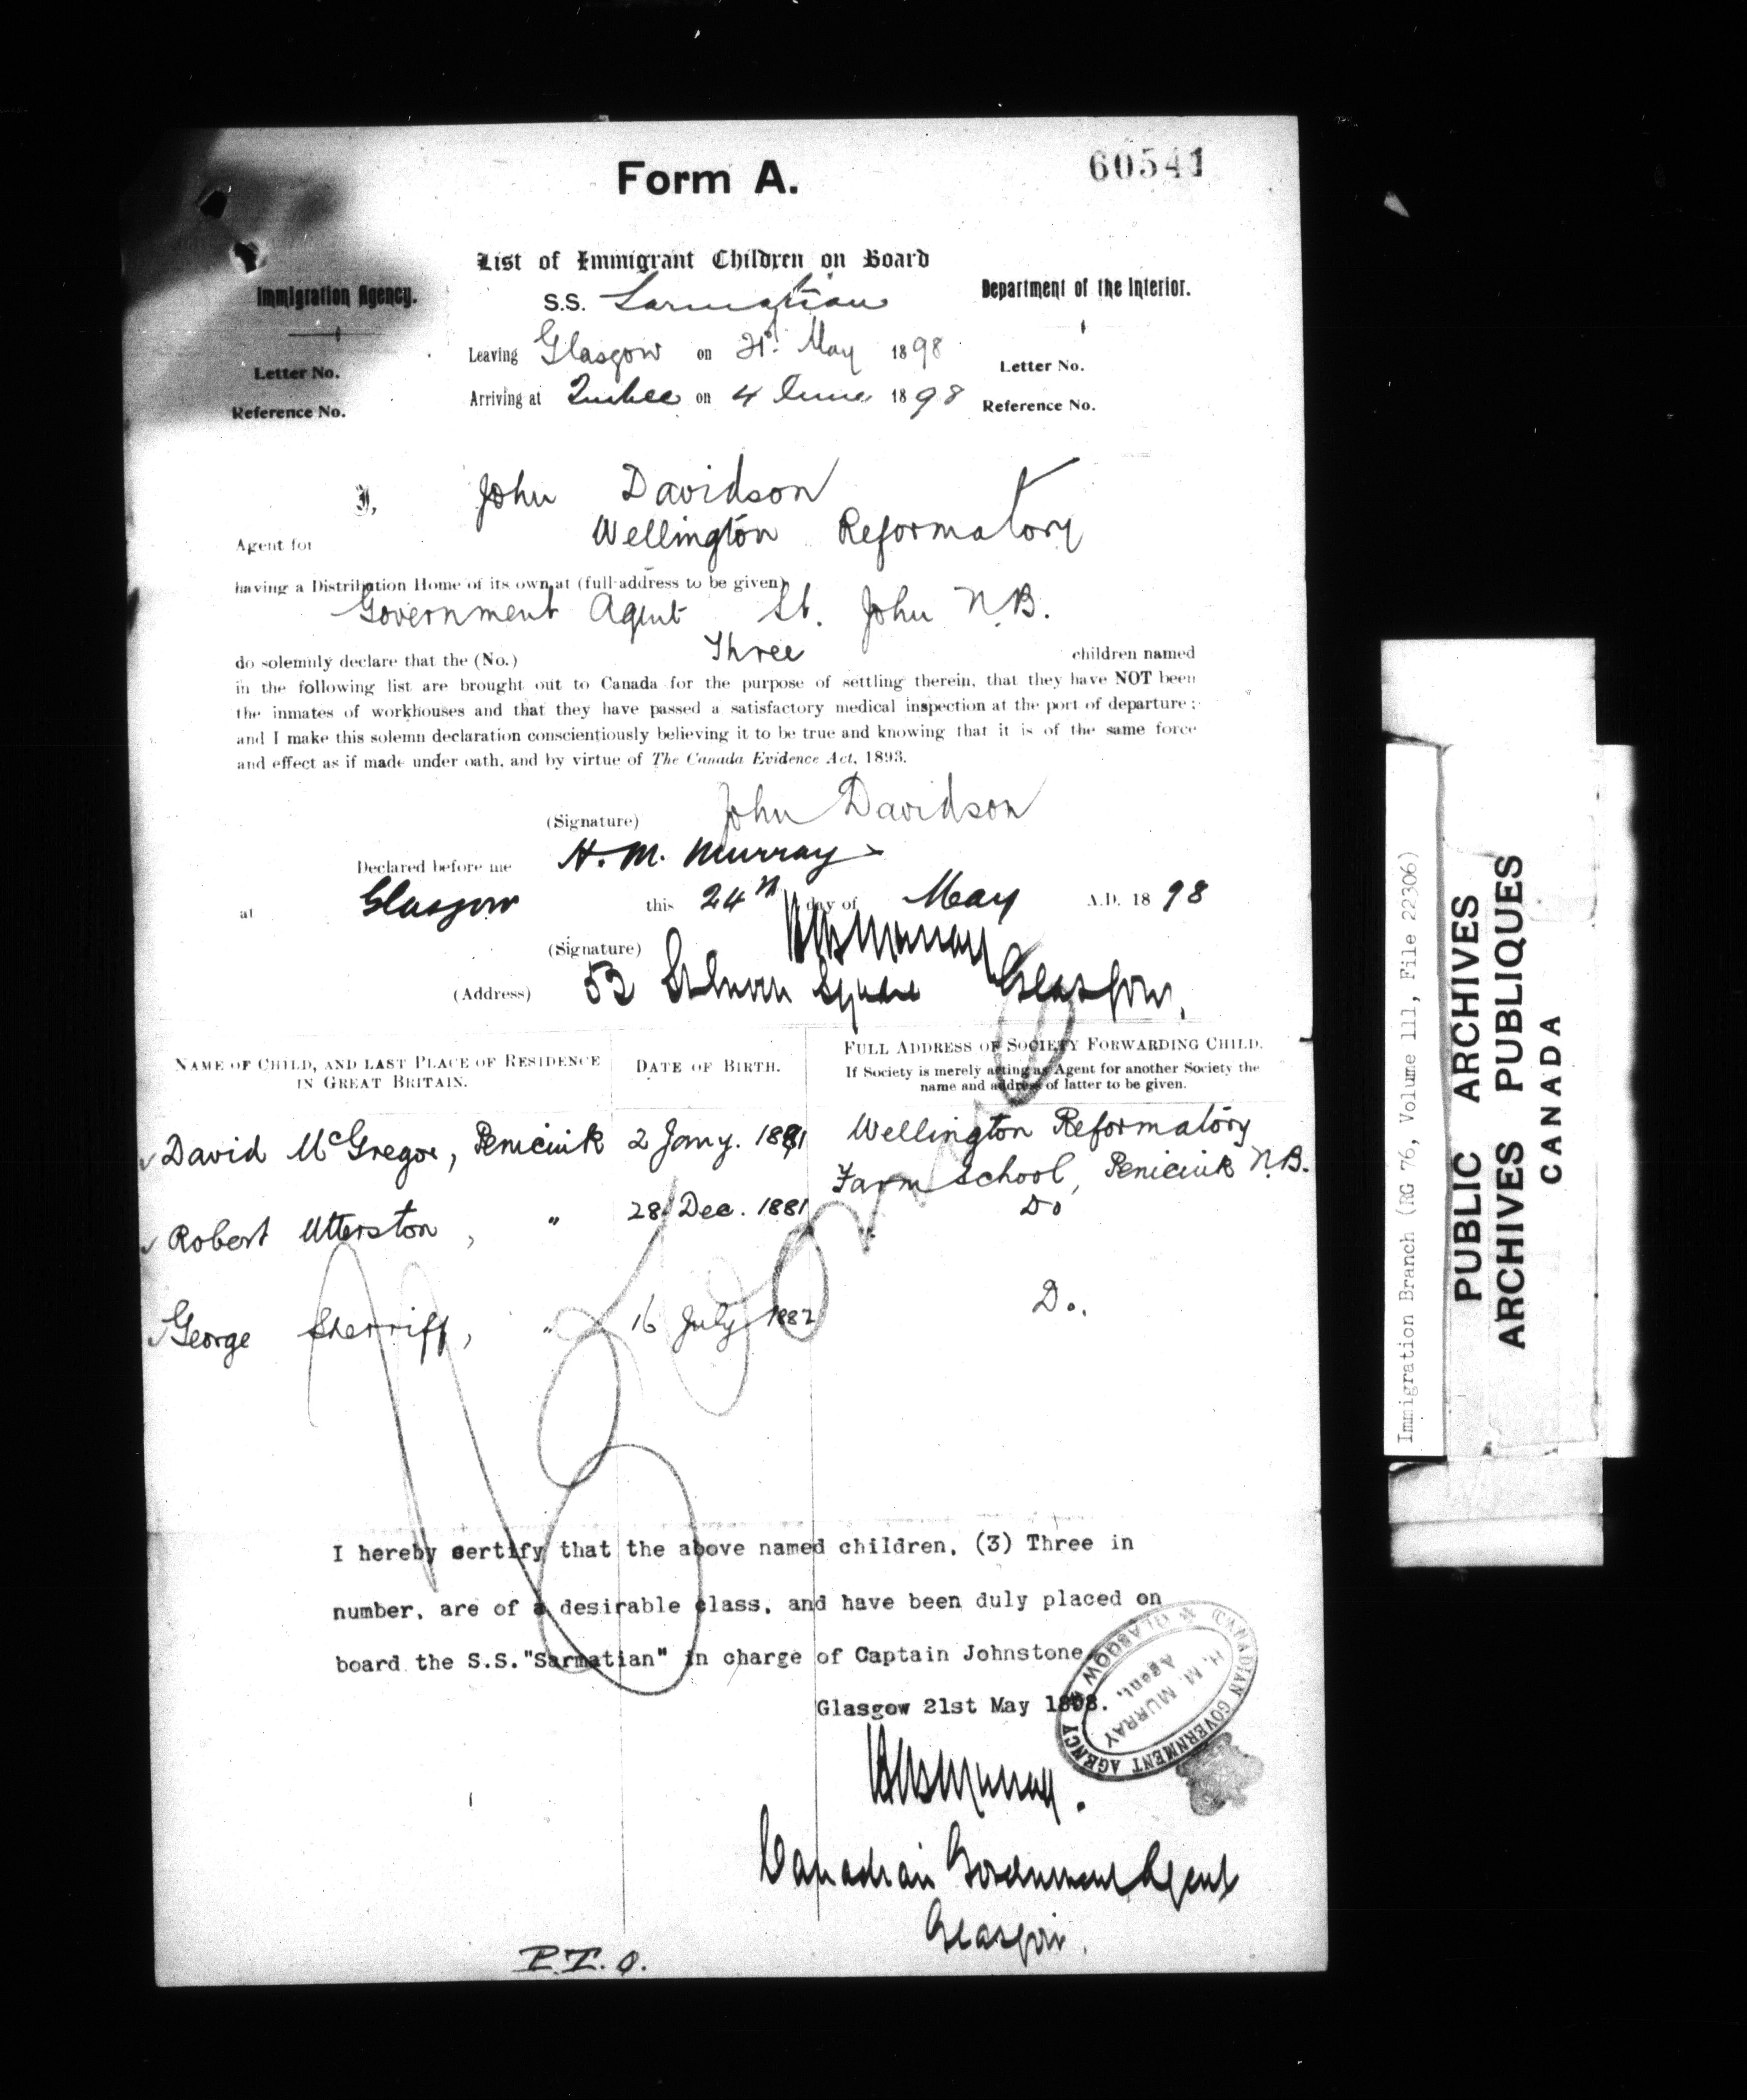 Form A.
60541
List of Immigrant Children on Board
Immigration Agency.
S.S. Sarmatian
Department of the Interior.
Leaving Glasgow on 21st May 1898
Letter No.
Letter No.
Arriving at Quebec on 4 June 1898
Reference No.
Reference No.
I, John Davidson
Agent for Wellington Reformatory
having a Distribution Home of its own at (full address to be given)
Government Agent St. John N.B.
do solemnly declare that the (No.) Three children named
in the following list are brought out to Canada for the purpose of settling therein, that they have NOT been
the inmates of workhouses and that they have passed a satisfactory medical inspection at the port of departure;
and I make this solemn declaration conscientiously believing it to be true and knowing that it is of the same force
and effect as if made under oath, and by virtue of The Canada Evidence Act, 1893.
(Signature) John Davidson
Declared before me H. M. Murray
at Glasgow this 24th day of May A.D. 1898
(Signature) H M Murray
(Address) 52 St Enoch Square Glasgow.
NAME OF CHILD, AND LAST PLACE OF RESIDENCE IN GREAT BRITAIN.
DATE OF BIRTH.
FULL ADDRESS OF SOCIETY FORWARDING CHILD.
If Society is merely acting as Agent for another Society the
name and address of latter to be given.
David McGregor, Penicuik 2 Jany. 1881 Wellington Reformatory
Farm School, Penicuik N.B.
Robert Utterston, " 28 Dec. 1881 Do
George Sherriff, " 16 July 1882 Do.
I hereby certify that the above named children, (3) Three in
number, are of a desirable class, and have been duly placed on
board the S.S."Sarmatian" in charge of Captain Johnstone
Glasgow 21st May 1898.
CANADIAN GOVERNMENT AGENCY GLASGOW
H. M. MURRAY
Agent.
H M Murray.
Canadian Government Agent
Glasgow.
P.T.O.
Immigration Branch (RG 76, Volume 111, File 22306)
PUBLIC ARCHIVES
ARCHIVES PUBLIQUES
CANADA